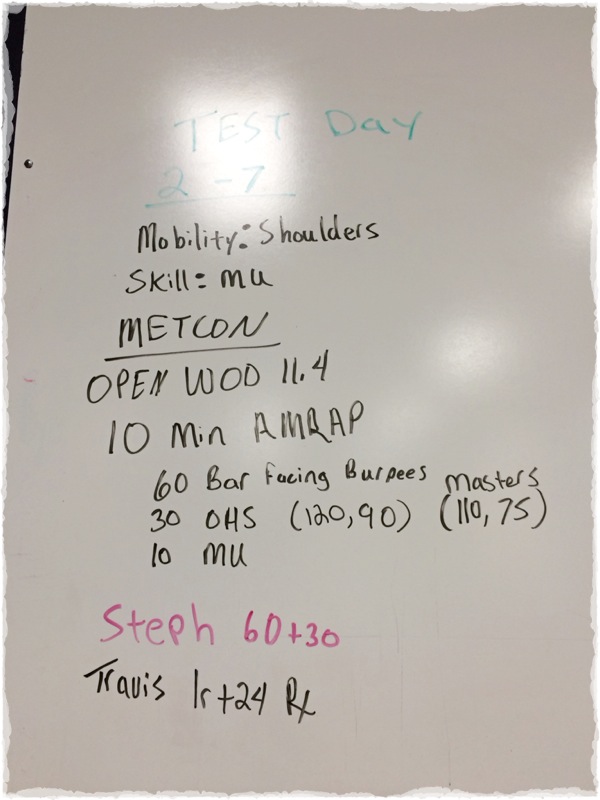 TEST Day
2-7
Mobility: Shoulders
Skill: MU
METCON
OPEN WOD 11.4
10 Min AMRAP
60 Bar Facing Burpees
30 OHS (120,90) Masters (110,75)
10 MU
Steph 60+30
Travis 1r+24 Rx